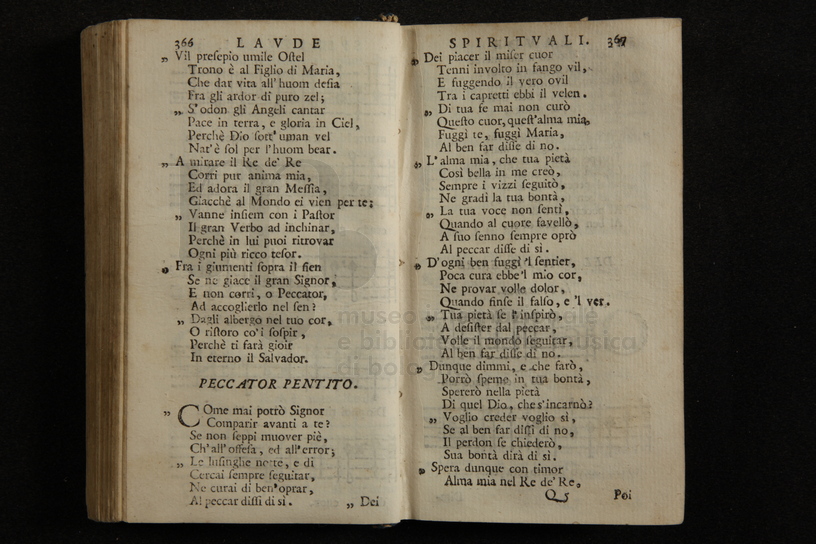 366 LAVDE
„ Vil presepio umile Ostel
Trono è al Figlio di Maria,
Che dar vita all' huom desia
Fra gli ardor di puro zel;
„ S'odon gli Angeli cantar
Pace in terra, e gloria in Ciel,
Perchè Dio sott' uman vel
Nat' è sol per l'huom bear.
„ A mirare il Re de' Re
Corri pur anima mia,
Ed adora il gran Messia,
Giacchè al Mondo ei vien per te;
„ Vanne insiem con i Pastor
Il gran Verbo ad inchinar,
Perchè in lui puoi ritrovar
Ogni più ricco tesor.
„ Fra i giumenti sopra il fien
Se ne giace il gran Signor,
E non corri, o Peccator,
Ad accoglierlo nel sen?
„ Dagli albergo nel tuo cor,
O ristoro co' i sospir,
Perchè ti farà gioir
In eterno il Salvador.
PECCATOR PENTITO.
„ COme mai potrò Signor
Comparir avanti a te?
Se non seppi muover piè,
Ch' all' offesa, ed all' error;
„ Le lusinghe notte, e di
Cercai sempre seguitar,
Ne curai di ben' oprar,
Al peccar dissi di si.
„ Dei
SPIRITVALI. 367
„ Dei piacer il miser cuor
Tenni involto in fango vil,
E fuggendo il vero ovil
Tra i capretti ebbi il velen.
„ Di tua fe mai non curò
Questo cuor, quest' alma mia,
Fuggì te, fuggì Maria,
Al ben far disse di no.
„ L' alma mia, che tua pietà
Così bella in me creò,
Sempre i vizzi seguitò,
Ne gradì la tua bontà,
„ La tua voce non sentì,
Quando al cuore favellò,
A suo senno sempre oprò
Al peccar disse di si.
„ D'ogni ben fuggì 'l sentier,
Poca cura ebbe'l mio cor,
Ne provar volle dolor,
Quando finse il falso, e 'l ver.
„ Tua pietà se l' inspirò,
A desister dal peccar,
Volle il mondo seguitar,
Al ben far disse di no.
„ Dunque dimmi, e che farò,
Porrò speme in tua bontà,
Spererò nella pietà
Di quel Dio, che s'incarnò?
„ Voglio creder voglio sì,
Se al ben far dissi di no,
Il perdon se chiederò,
Sua bontà dirà di sì.
„ Spera dunque con timor
Alma mia nel Re de' Re,
Q5 Poi